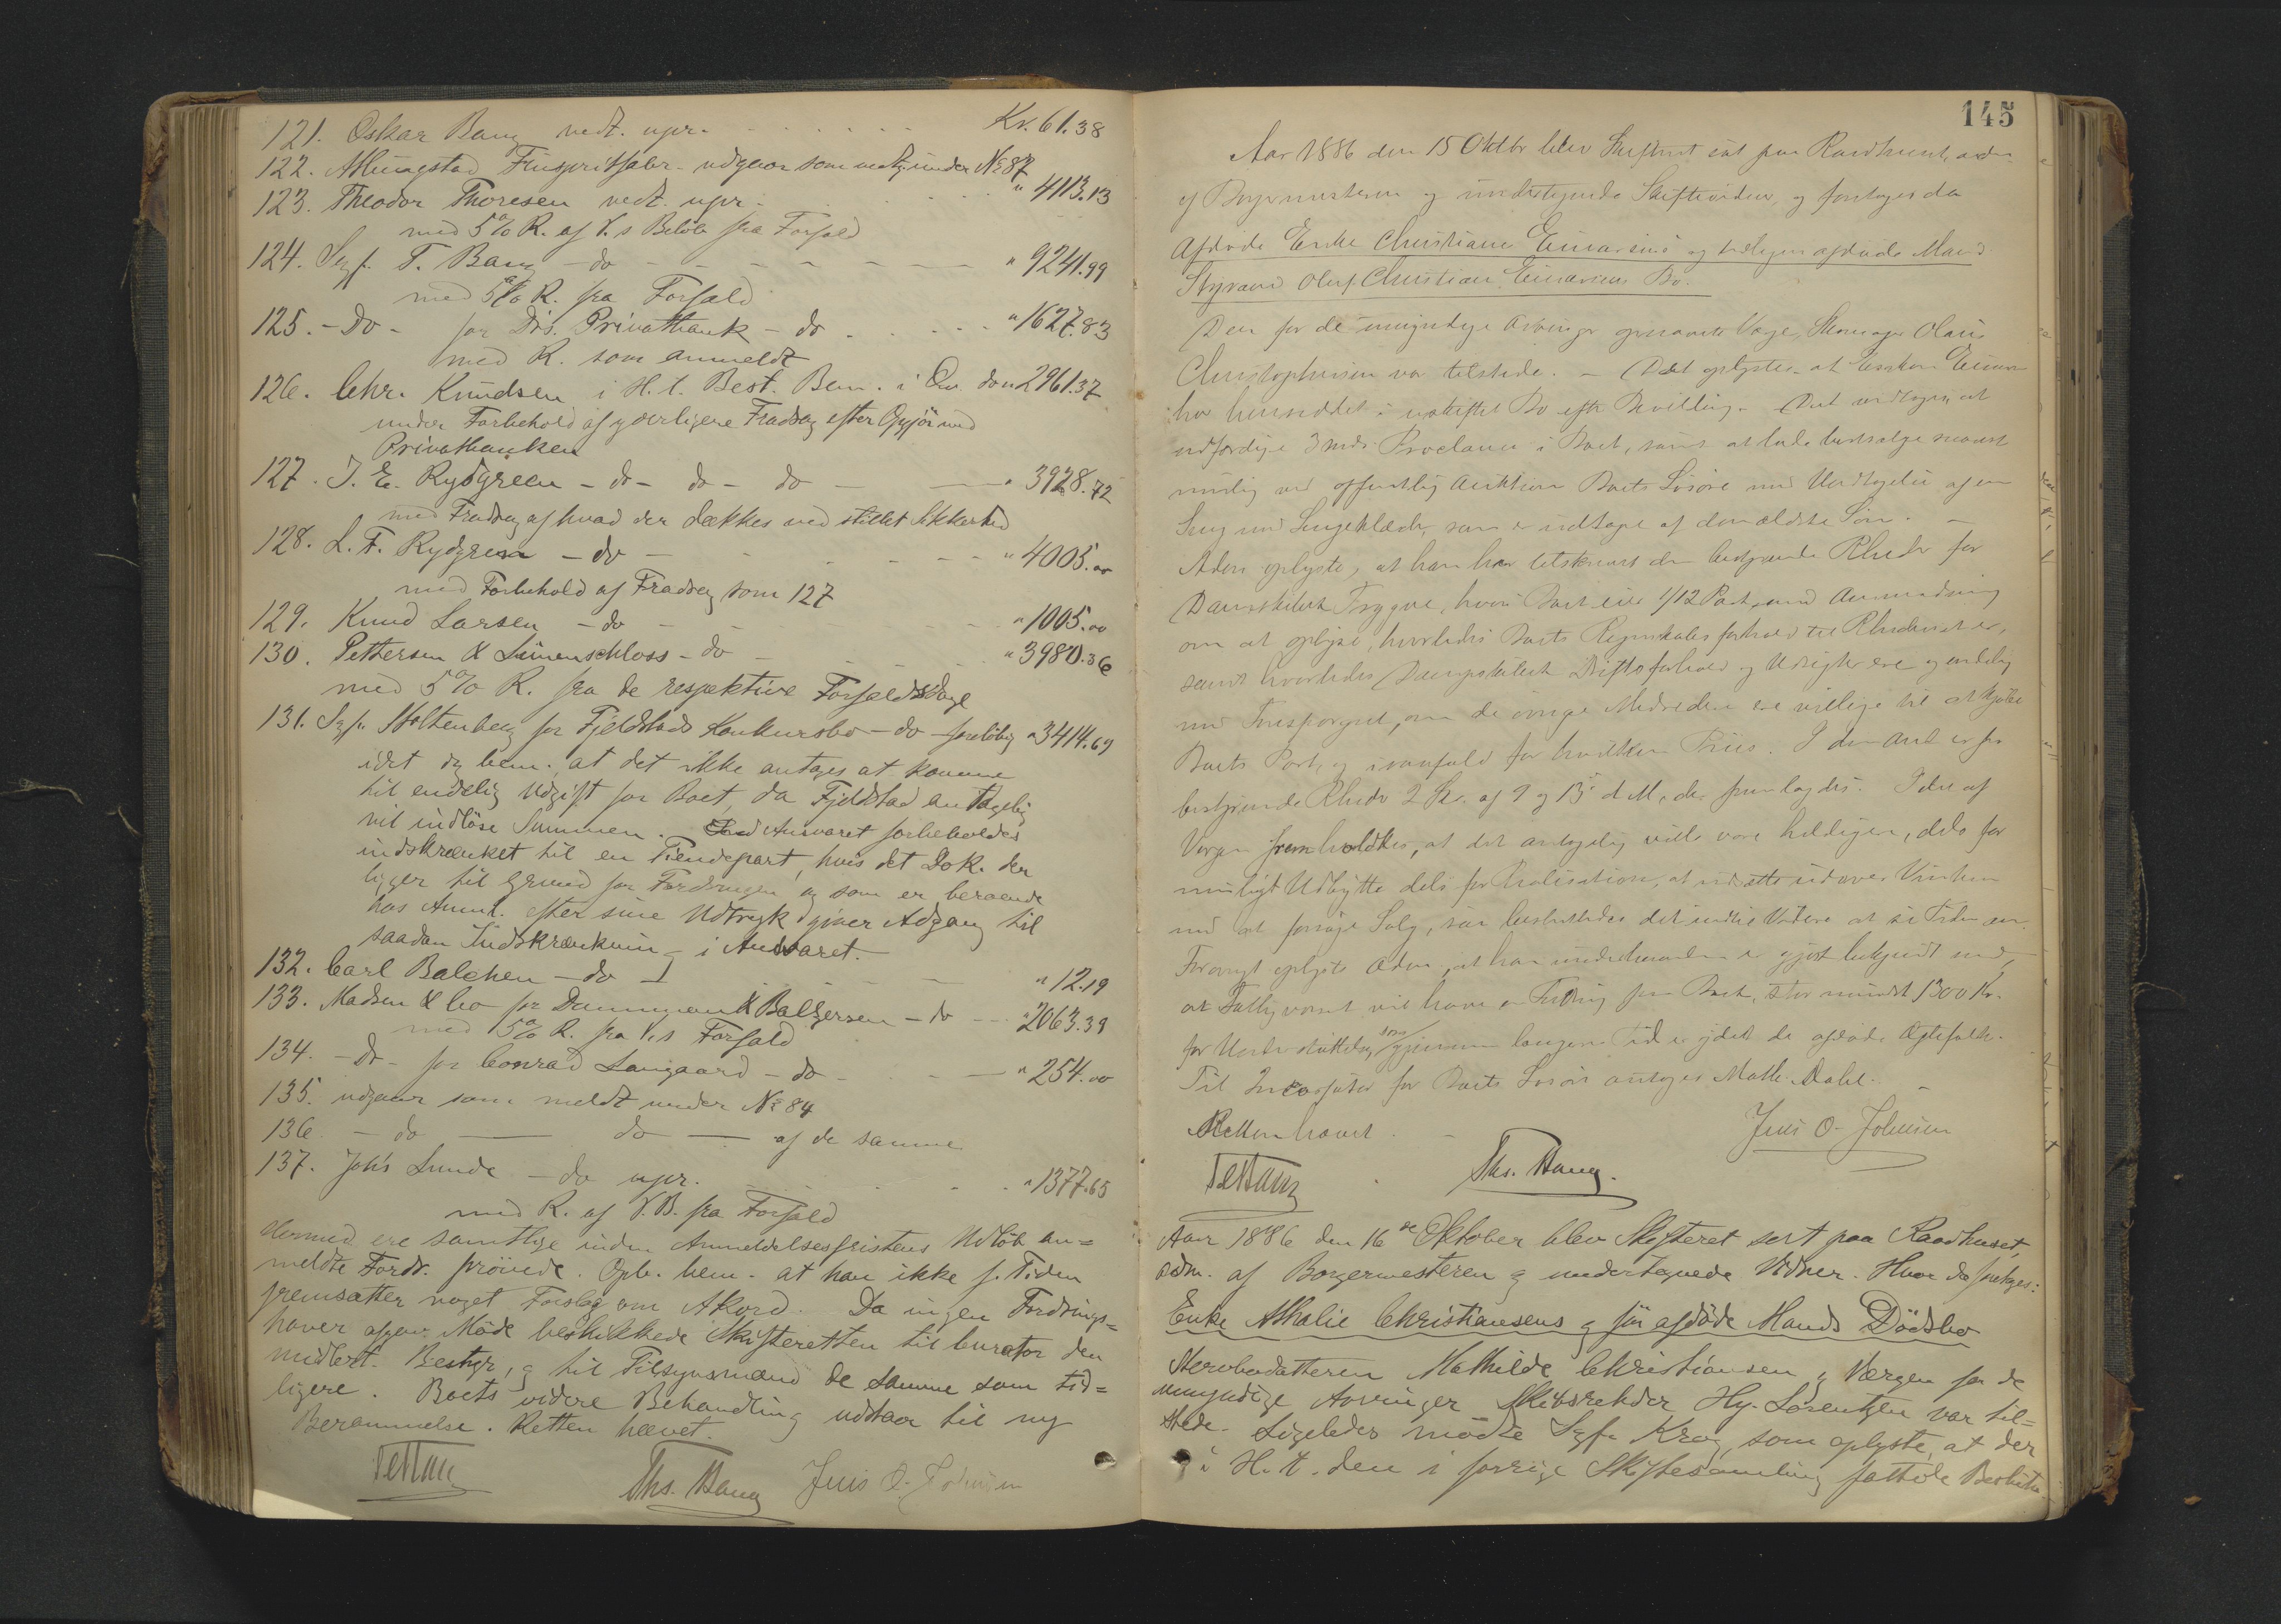 121. Oskar Bang vedt. upr. Kr. 61.38
122. udgaar som under No 87
123. Theodor Thoresen vedt. upr. " 4113.13
med 5% R. af V.s Beløb fra Forfald
124. Sagf. T. Bang - do - " 9241.99
med 5% R. fra Forfald
125. - Do - for Drs. Privatbank - do " 1627.83
med R. som anmeldt
126. Chr. Knudsen i H. t. Best. Bem. i do " 2961.37
under Forbehold af yderligere Fradrag efter Opgjør med
Privatbanken
127. J. E. Rydgreen - do - do - do - " 3928.72
med Fradrag af hvad der dækkes ved stillet Sikkerhed
128. L. F. Rydgren - do - " 4005.00
med Forbehold af Fradrag som 127
129. Knud Larsen - do - " 1005.00
130. Pettersen & - do - " 3980.36
med 5% R. fra de respektive Forfaldsdage
131. Sagf. Stoltenberg for Fjeldstads Konkursbo - do - foreløbig " 3414.69
idet bem. at det ikke antages at komme
til endelig Udgift for Boet, da Fjeldstad antagelig
vil indløse Summen. Ansvaret forbeholdes
indskrænket til en Tiendepart, hvis det Dok. der
ligger til Grund for Fordringen og som er beroende
hos Anm. efter sine Udtryk giver Adgang til
saadan Indskrænkning i Ansvaret.
132. Carl Balchen - do - " 12.19
133. Madsen & Co for & Balzersen - do - " 2063.39
med 5% R. fra V.s Forfald
134. - do - for Conrad Langaard - do - " 254.00
135. udgaar som meldt under No 84
136. - do - do - af de samme
137. Johs Lunde - do upr. " 1377.65
med R. af V.B. fra Forfald
Hermed ere samtlige inden Anmeldelsesfristens Udløb an=
meldte Fordr. prøvede. Opb. bem. at han ikke f. Tiden
fremsætter noget Forslag om Akord. Da ingen Fordrings=
haver afgav Møde beskikkede Skifteretten til Curator den
midlert. Bestyr, og til Tilsynsmænd de samme som tid=
ligere. Boets videre Behandling udstaar til ny
Berammelse. Retten hævet.
Ths. Hang Jens O. Johnsen
145
Aar 1886 den 15 Oktbr blev Skifteret sat paa Raadhuset, adm.
af Borgermesteren og undertegnede Skiftevidner, og foretoges da
Afdøde Enke Christiane Einarsens og tidligere afdøde Mand
Styrmand Oluf Christian Einarsens Bo.
Den for de umyndige Arvinger opnævnte Værge, Skomager Olaus
Christophersen var tilstede. - Det oplystes at Enken
har hensiddet i uskiftet Bo efter Bevilling. Det vedtoges at
udfærdige 3 mdr. Proclama i Boet, samt at lade bortsælge snarest
mulig ved offentlig Auktion Boets Løsøre med Undtagelse af en
Seng med Sengeklæder, som er udtaget af den ældste Søn. -
Adm. oplyste, at han har tilskrevet den bestyrende Rheder for
Dampskibet Trygve, hvori Boet eier 1/12 Part, med Anmodning
om at oplyse, hvorledes Boets Regnskabsforhold til Rhederiet er,
samt hvorledes Dampskibets Driftsforhold og Udsigter ere og endelig
med Forespørgsel, om de øvrige Medredere ere villige til at kjøbe
Boets Part, og isaafald for hvilken Pris. I den Anl. er fra
bestyrende Rheder 2 Skr. af 9 og 13 d. M., der fremlagdes. Idet af
Værgen fremholdtes, at det antagelig vilde være heldigere, dels for
muligt Udbytte dels for Realisation, at udsætte udover Vinteren
med at forsøge Salg, saa besluttedes det indtil Videre at se Tiden an.
Forøvrigt oplyste Adm., at han underhaanden er gjort bekjendt med,
at Fattigvæsenet vil have en Fordring paa Boet, stor mindst 1300 Kr.
for Understøttelse, som gjennem længere Tid er ydet de afdøde Ægtefolk.
Til Inkassator for Boets Løsøre antoges Math. Dahl. -
Retten hævet. -
Jens O. Johnsen
Ths. Hang.
Aar 1886 den 16de Oktober blev Skifteret sat paa Raadhuset,
adm. af Borgermesteren og undertegnede Vidner. Hvor da foretoges:
Enke Athalie Christiansens og før afdøde Mands Dødsbo
Stervbodatteren Mathilde Christiansen og Værgen for de
umyndige Arvinger Skibsrehder Hy. Lorentzen var til=
stede. Ligeledes mødte Sagf. Krog, som oplyste, at der
i H. t. den i forrige Skiftesamling fattede Beslutn.